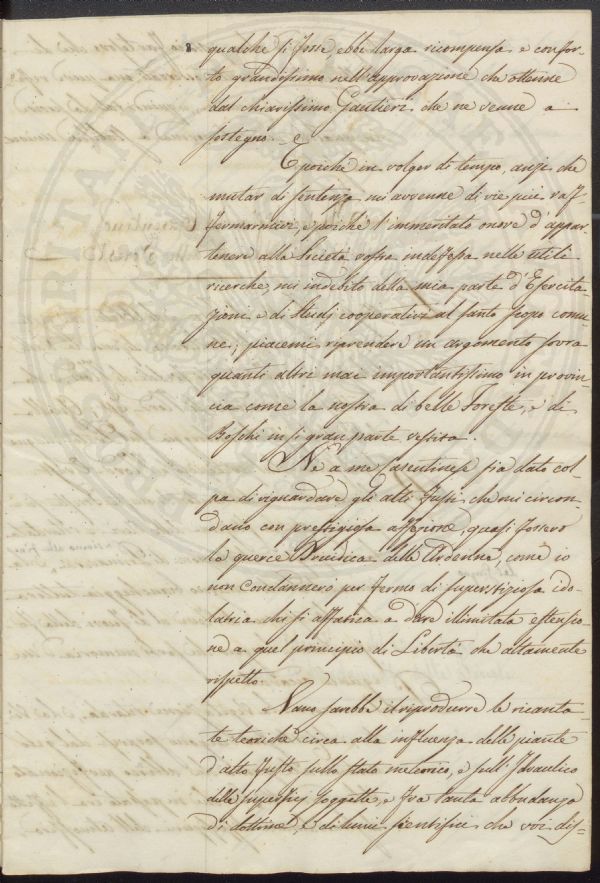 qualche si fosse ebbi larga ricompensa e confor-
to grandissimo nell'approvazione che ottenne
dal chiarissimo Gautieri che ne venne a
sostegno.
E poichè in volger di tempo, anzi che
mutar di sentenza mi avvenne di vie più raf-
fermarmici, e poichè l'immeritato onore d'appar-
tenere alla Società vostra indefessa nelle utili
ricerche, mi indebitò della mia parte d'Esercita-
zioni e di Studj cooperativi al santo scopo comu-
ne; piacemi riprendere un argomento sovra
quanti altri mai importantissimo in provin-
cia come la nostra di belle Foreste, e di
Boschi in sì gran parte vestita.
Nè a me Casentinese sia dato col-
pa di riguardare gli alti Fusti che mi circon-
dano con prestigiosa affezione, quasi fossero
la querce Druidica delle Ardenne, come io
non condannerò per fermo di superstiziosa ido-
latria chi si affatica a dare illimitata estensio-
ne a quel principio di Libertà che altamente
rispetto.
Vano sarebbe il riprodurre le ricanta-
te teoriche circa alla influenza delle piante
d'alto fusto sullo stato meteorico, e sull'Idraulico
delle superficj soggette, e fra tanta abbondanza
di dottrine, e di lumi scientifici che voi dis-